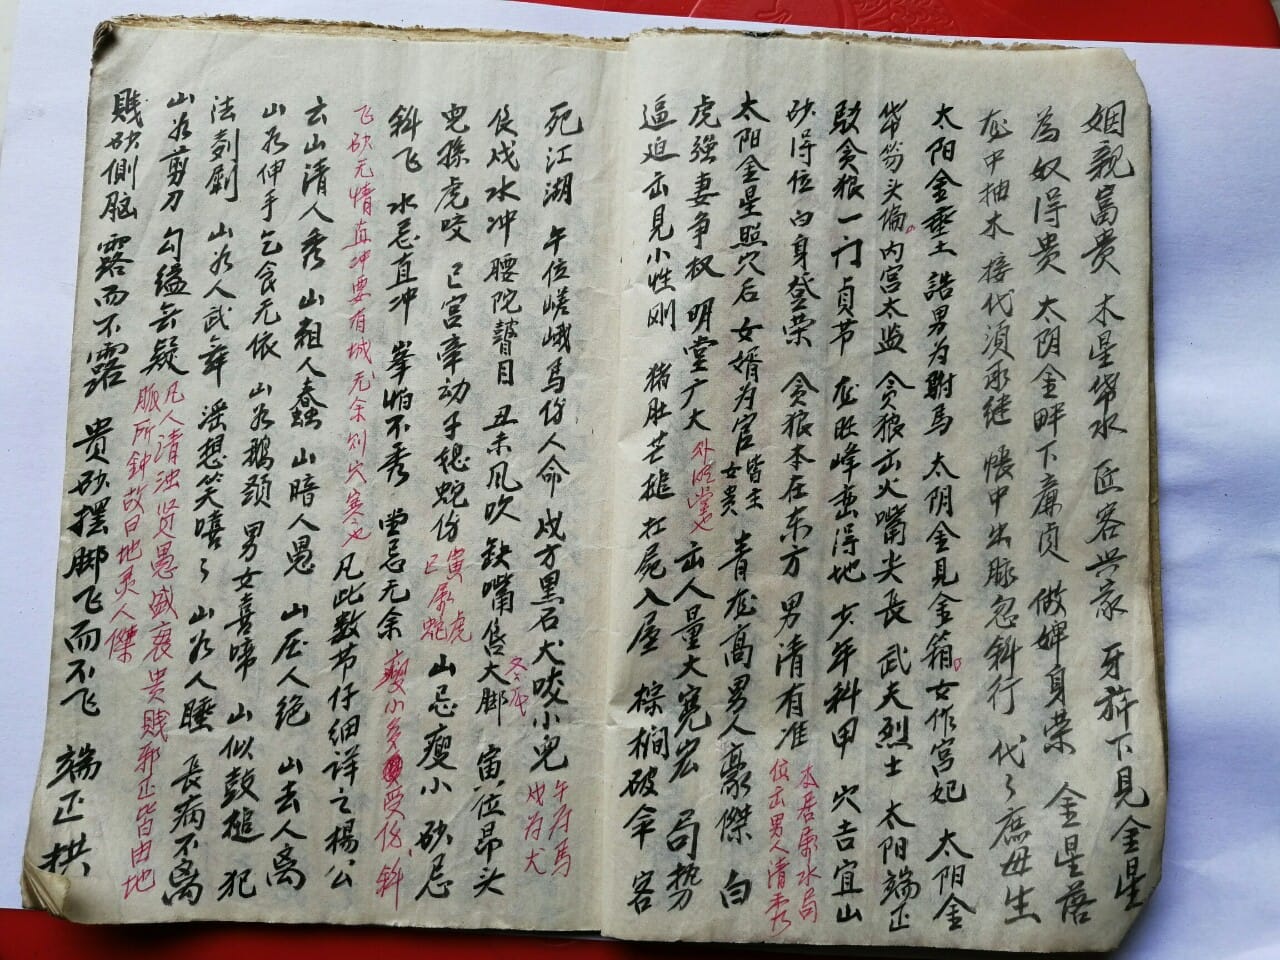 姻親富贵 木星帶水 匠客兴家 牙旂下見金星
為奴得贵 太阴金畔下廉贞 做婢身荣 金星落
龙中抽木 接代須承继 帳中出脉忽斜行 代々庶母生
太阳金垂土 誥男为駙馬 太阴金見金箱 女作宮妃 太阳金
带劳头偏 内宫太监 贪狼出火嘴尖長 武夫烈士 太阳端正
贪狼一门贞节 龙旺峰垂得地 少年科甲 穴吉宜山
砂得位 白身登荣 贪狼本在东方 男清有准
木居東水局
位出男人清秀
太阳金星照穴后 女婿为官
皆主
女贵
青龙高男人豪傑 白
虎强妻争权 明堂广大
外明堂也
出人量大宽宏 局势
逼迫 出見小性刚 猪肚芒槌 扛屍入屋 棕榈破伞 客
死江湖 午位嵯峨馬伤人命 戌方黑石犬咬小兒
午为馬
戌为犬
艮戌水冲腰陀瞽目 丑未风吹 缺嘴 大脚
寅位昂头
兒孫虎咬 巳宫牵动子媳蛇伤
寅属虎
巳属蛇
山忌瘦小 砂忌
斜飞 水忌直冲 峯怕不秀 堂忌无余
瘦小多受伤 斜
飞砂无情直冲要有城 无余则穴寒也
凡此数节仔细详之 楊公
云山清人秀 山粗人蠢 山暗人愚 山压人绝 山去人离
山为伸手乞食无依 山为鹅颈 男女喜啼 山似鼓槌 犯
法刽劊 山为人武舞 淫想笑嘻々 山为人睡 長病不离
山为剪刀 勾缢无疑
凡人清浊贤愚盛衰贵贱邪正皆由地
脈所钟故曰地灵人傑
贱砂側脑 露而不露 贵砂摆脚 飞而不飞 端正拱